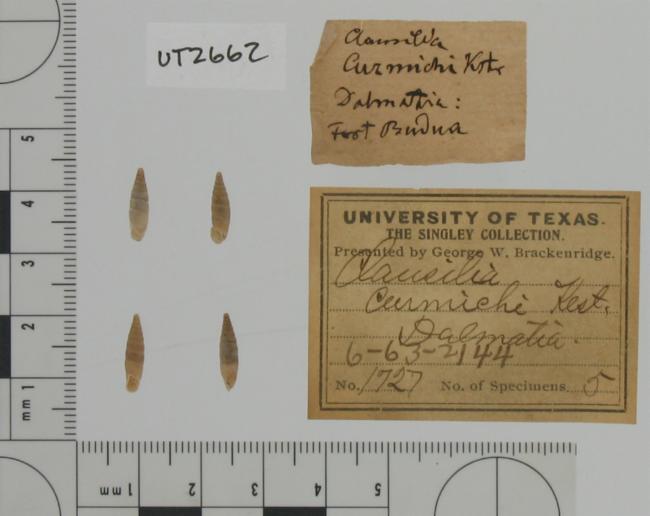 UT2662
Clausilia
Curmichi Kstr
Dalmatia:
Fort Budua
UNIVERSITY OF TEXAS.
THE SINGLEY COLLECTION.
Presented by George W. Brackenridge.
Clausilia
Curmichi Kest.
Dalmatia.
6-63-2144
No. 1727 No. of Specimens. 5
5
4
3
2
1
mm
1 mm
2
3
4
5